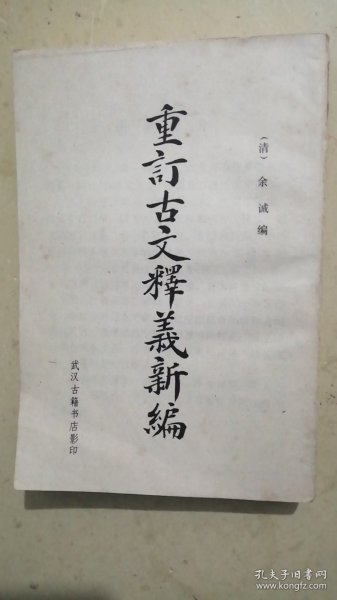 （清）余诚编
重訂古文釋義新編
武汉古籍书店影印
孔夫子旧书网